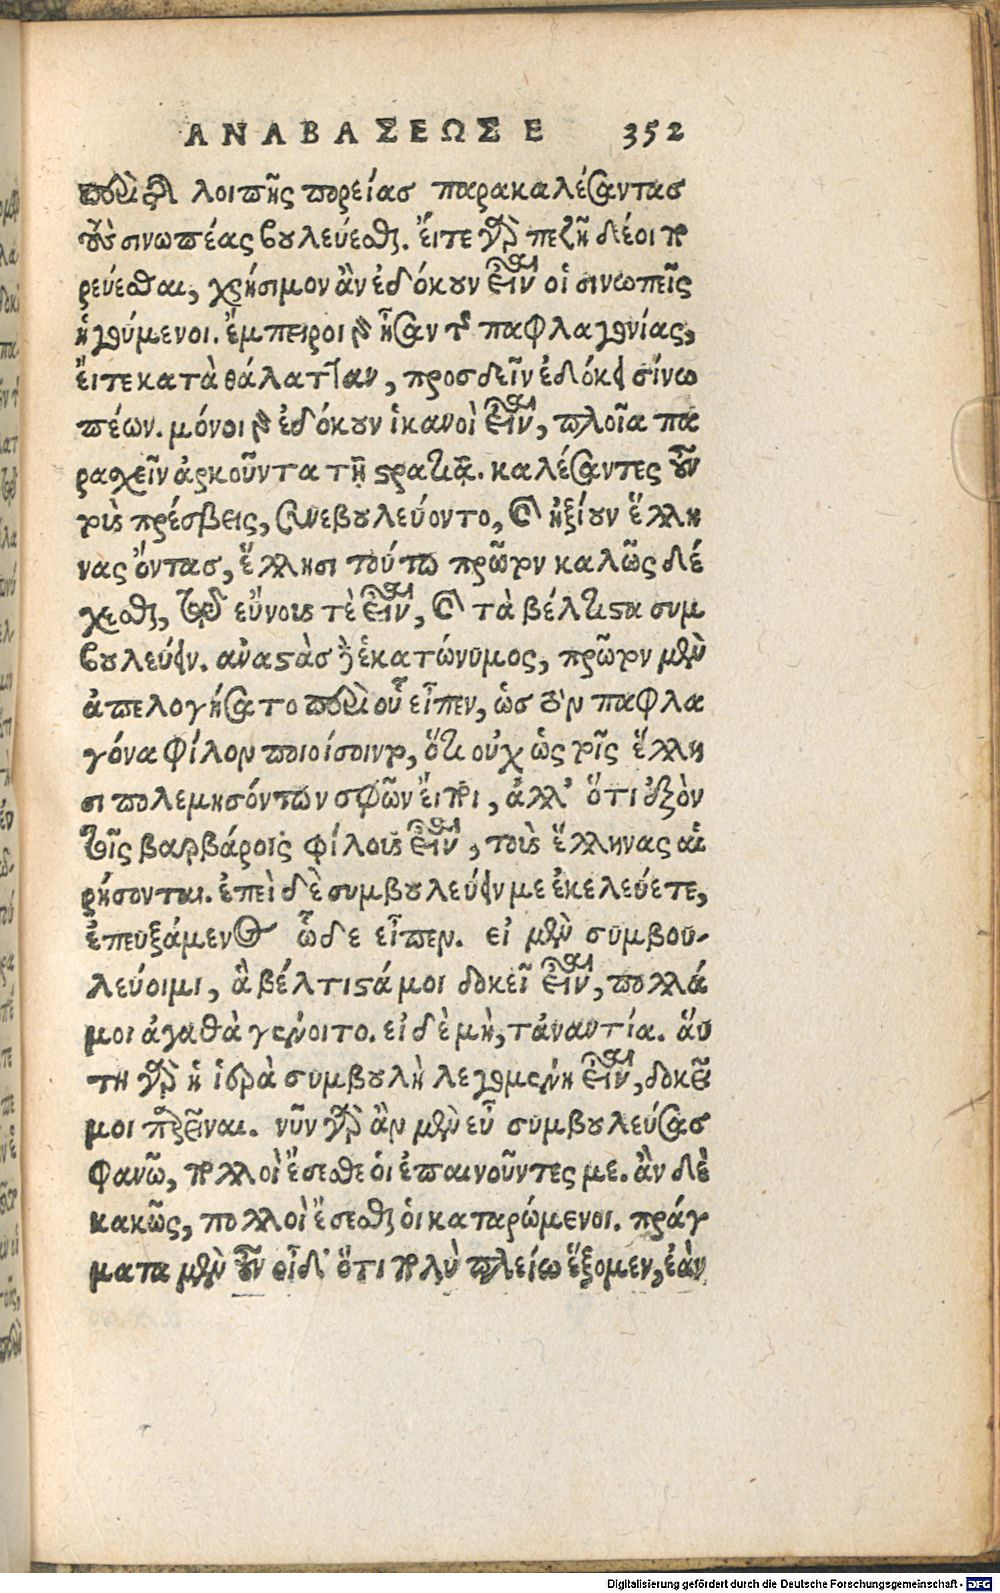 ΑΝΑΒΑΣΕΩΣ Ε 352
περὶ τῆς λοιπῆς πορείας παρακαλέσαντας
τοὺς σινωπέας βουλεύεσθαι. εἴτε γὰρ πεζῇ δέοι πο
ρεύεσθαι, χρήσιμον ἂν ἐδόκουν εἶναι οἱ σινωπεῖς
ἡγούμενοι. ἔμπειροι γὰρ ἦσαν τῆς παφλαγονίας,
εἴτε κατὰ θάλατταν, προσδεῖν ἐδόκει σινω
πέων. μόνοι γὰρ ἐδόκουν ἱκανοὶ εἶναι, πλοῖα πα
ρασχεῖν ἀρκοῦντα τῇ στρατιᾷ. καλέσαντες οὖν
τοὺς πρέσβεις, συνεβουλεύοντο, καὶ ἠξίουν ἕλλη
νας ὄντας, ἕλλησι τούτῳ πρῶτον καλῶς δέ
χεσθαι, τῷ εὔνους τὲ εἶναι, καὶ τὰ βέλτιστα συμ
βουλεύειν. ἀναστὰς δὲ ἑκατώνυμος, πρῶτον μὲν
ἀπελογήσατο περὶ οὗ εἶπεν, ὡς τὸν παφλα
γόνα φίλον ποιοίσοιντο, ὅτι οὐχ ὡς τοῖς ἕλλη
σι πολεμησόντων σφῶν εἴποι, ἀλλ' ὅτι ἐξὸν
τοῖς βαρβάροις φίλους εἶναι, τοὺς ἕλληνας αἱ
ρήσονται. ἐπεὶ δὲ συμβουλεύειν με ἐκελεύετε,
ἐπευξάμενος ὧδε εἶπεν. εἰ μὲν συμβου-
λεύοιμι, ἃ βέλτιστά μοι δοκεῖ εἶναι, πολλά
μοι ἀγαθὰ γένοιτο. εἰ δὲ μὴ, τἀναντία. αὕ
τη γὰρ ἡ ἱερὰ συμβουλὴ λεγομένη εἶναι, δοκεῖ
μοι παρεῖναι. νῦν γὰρ ἂν μὲν εὖ συμβουλεύσας
φανῶ, πολλοὶ ἔσεσθε οἱ ἐπαινοῦντες με. ἂν δὲ
κακῶς, πολλοὶ ἔσεσθαι οἱ καταρώμενοι. πράγ
ματα μὲν οὖν οἶδ' ὅτι πολὺ πλείω ἕξομεν, ἐὰν
Digitalisierung gefördert durch die Deutsche Forschungsgemeinschaft - DFG